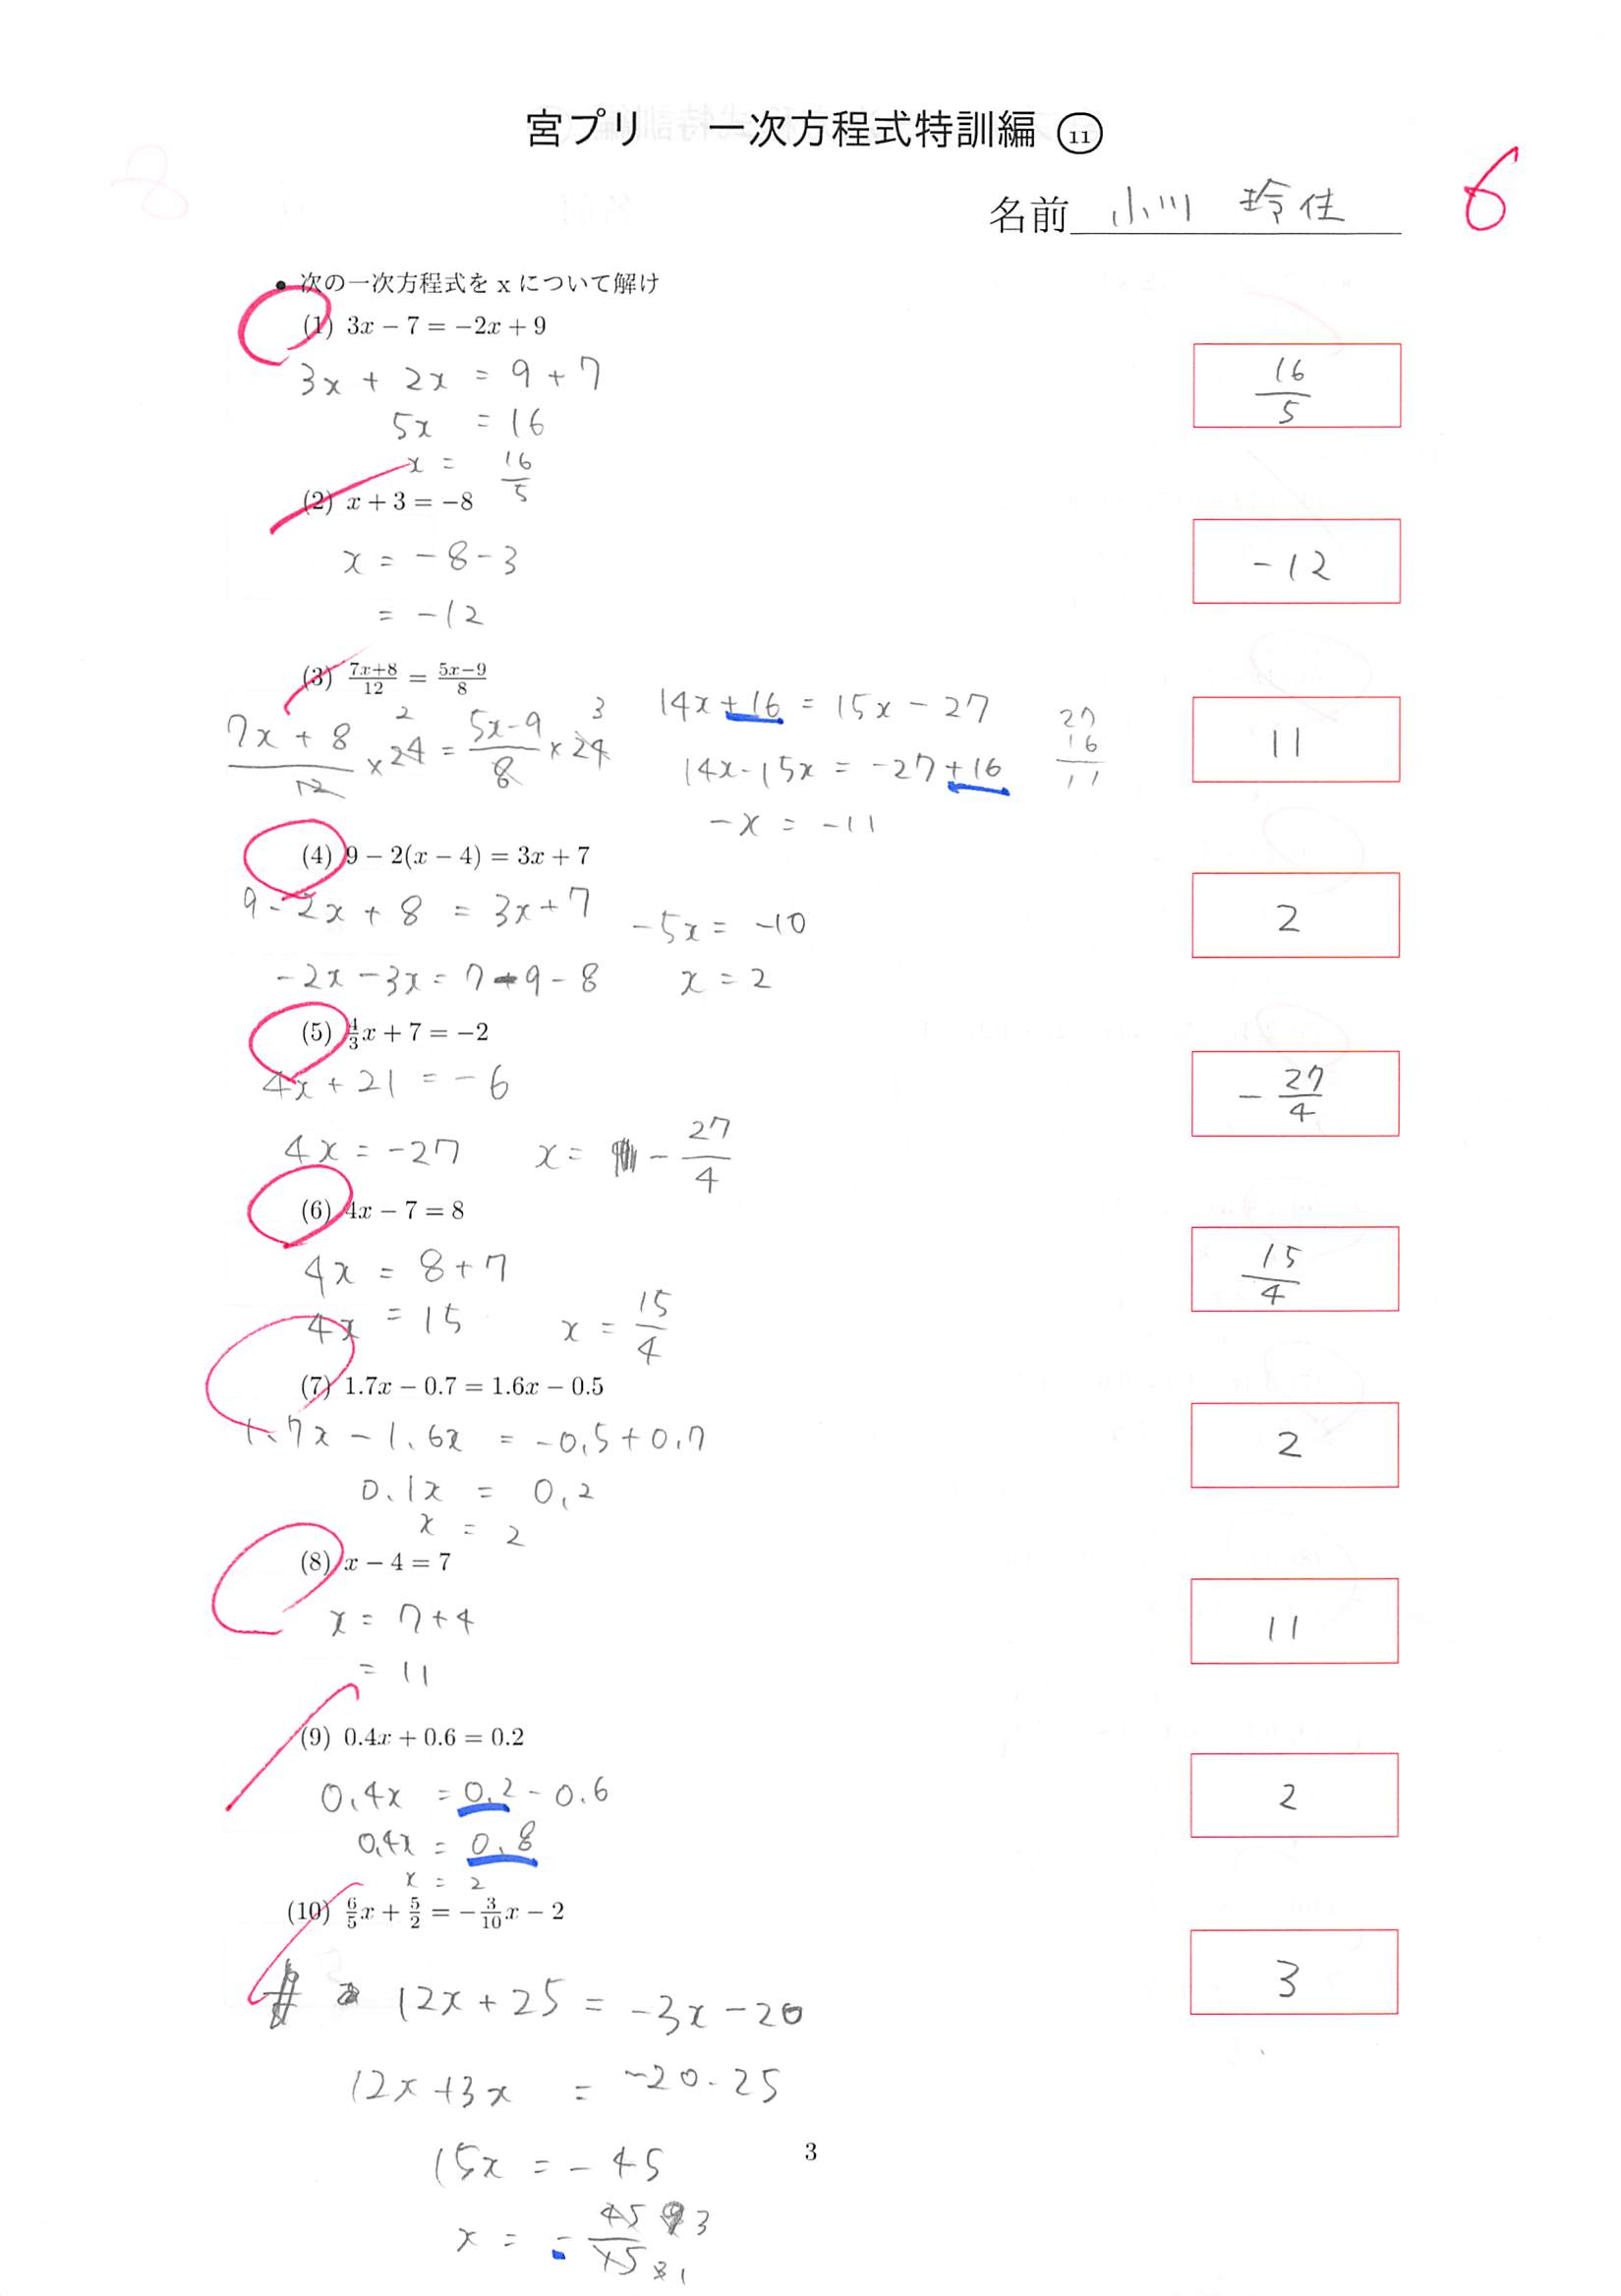 宮プリ　一次方程式特訓編 ⑪
6
名前 小川 玲佳
• 次の一次方程式を x について解け
(1) 3x − 7 = −2x + 9
3x + 2x = 9 + 7
5x = 16
x = 16/5
16/5
(2) x + 3 = −8
x = −8 − 3
= −12
−12
(3) (7x+8)/12 = (5x−9)/8
(7x + 8)/12 × 24 2 = (5x−9)/8 × 24 3
14x + 16 = 15x − 27
14x − 15x = −27 + 16
−x = −11
27
16
11
11
(4) 9 − 2(x − 4) = 3x + 7
9 − 2x + 8 = 3x + 7
−2x − 3x = 7 − 9 − 8
−5x = −10
x = 2
2
(5) 4/3 x + 7 = −2
4x + 21 = −6
4x = −27
x = − 27/4
− 27/4
(6) 4x − 7 = 8
4x = 8 + 7
4x = 15
x = 15/4
15/4
(7) 1.7x − 0.7 = 1.6x − 0.5
1.7x − 1.6x = −0.5 + 0.7
0.1x = 0.2
x = 2
2
(8) x − 4 = 7
x = 7 + 4
= 11
11
(9) 0.4x + 0.6 = 0.2
0.4x = 0.2 − 0.6
0.4x = 0.8
x = 2
2
(10) 6/5 x + 5/2 = − 3/10 x − 2
12x + 25 = −3x − 20
12x + 3x = −20 − 25
15x = −45
x = − 45/15 3 1
3
3